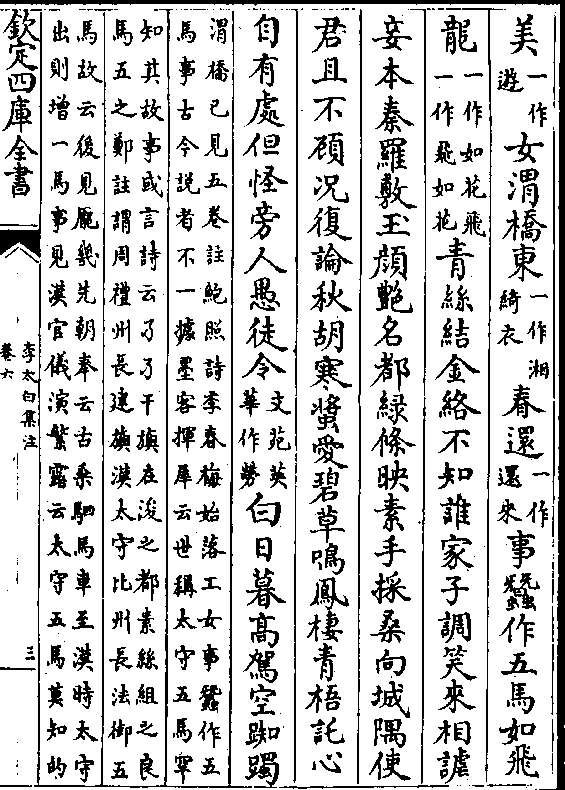 美一作遊女渭橋東一作湘綺衣春還一作還來事蠶作五馬如飛
龍一作如花飛一作飛如花青絲結金絡不知誰家子調笑來相謔
妾本秦羅敷玉顔艷名都緑條映素手採桑向城隅使
君且不顧况復論秋胡寒螿愛碧草鳴鳳棲青梧託心
自有處但怪旁人愚徒令文苑英華作勞白日暮高駕空踟躅
渭橋已見五卷註鮑照詩季春梅始落工女事蠶作五
馬事古今説者不一據墨客揮犀云世稱太守五馬罕
知其故事或言詩云孑孑干旟在浚之都素絲組之良
馬五之鄭註謂周禮州長建旟漢太守比州長法御五
馬故云後見龎幾先朝奉云古乘駟馬車至漢時太守
出則增一馬事見漢官儀演繁露云太守五馬莫知的
欽定四庫全書
李太白集注
卷六
三